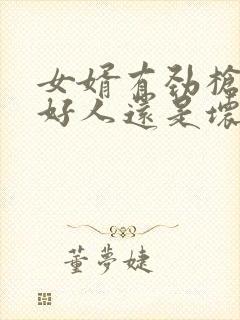 女婿有劲槍
好人還是壞
董夢婕